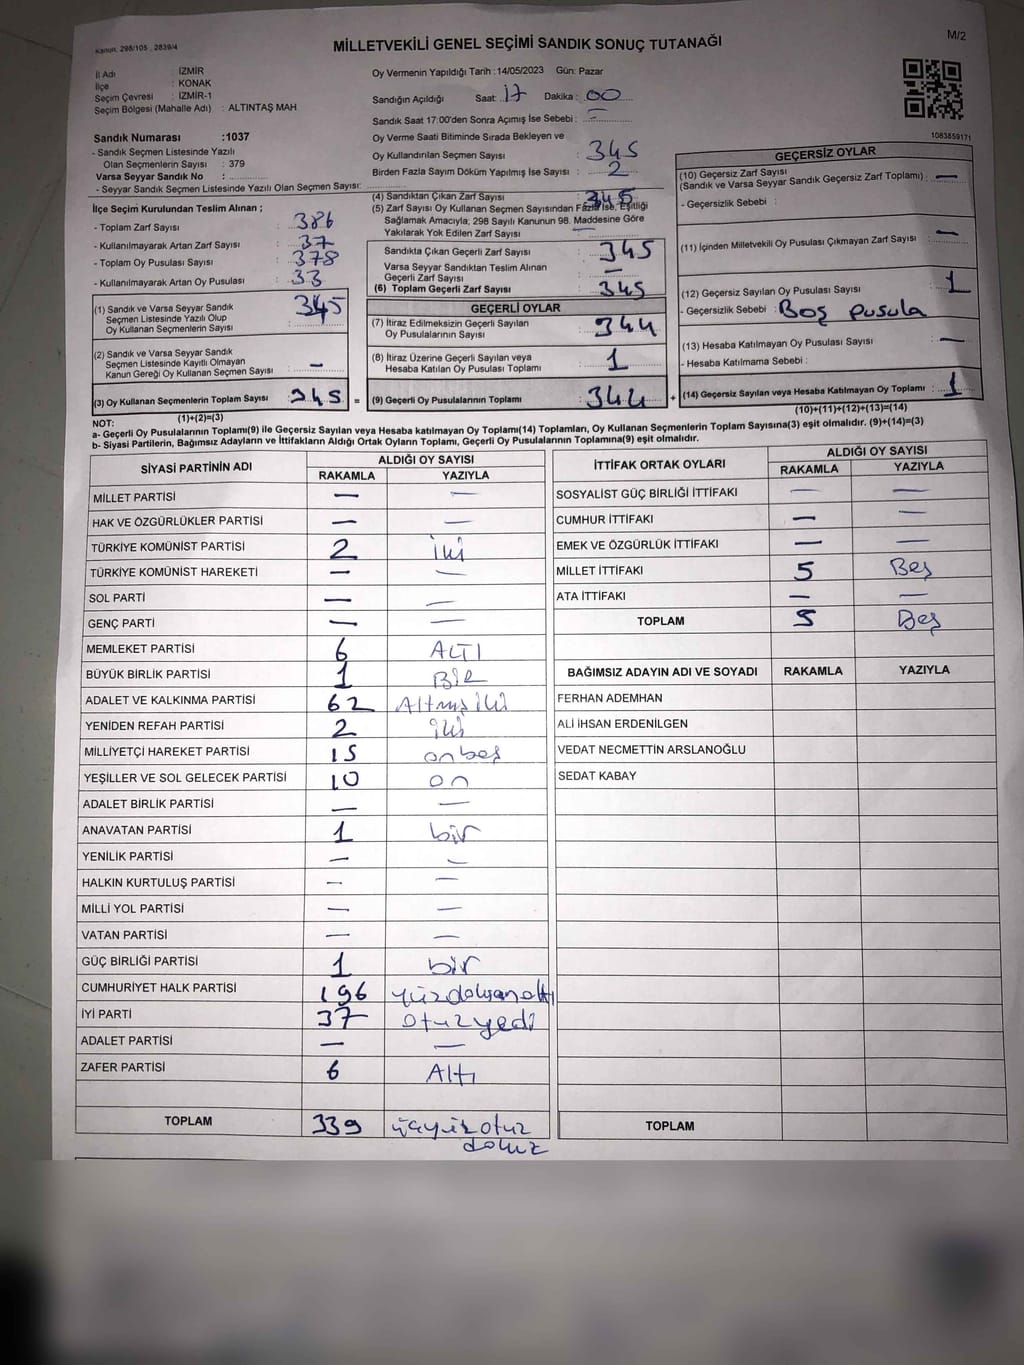 Kanun. 298/105 , 2839/4
MİLLETVEKİLİ GENEL SEÇİMİ SANDIK SONUÇ TUTANAĞI
M/2
İl Adı : İZMİR
İlçe : KONAK
Seçim Çevresi : İZMİR-1
Seçim Bölgesi (Mahalle Adı) : ALTINTAŞ MAH
Sandık Numarası :1037
- Sandık Seçmen Listesinde Yazılı
Olan Seçmenlerin Sayısı : 379
Varsa Seyyar Sandık No :
- Seyyar Sandık Seçmen Listesinde Yazılı Olan Seçmen Sayısı:
Oy Vermenin Yapıldığı Tarih :14/05/2023 Gün: Pazar
Sandığın Açıldığı Saat: 17 Dakika : 00
Sandık Saat 17:00'den Sonra Açımış İse Sebebi : -
Oy Verme Saati Bitiminde Sırada Bekleyen ve
Oy Kullandırılan Seçmen Sayısı : 345
Birden Fazla Sayım Döküm Yapılmış İse Sayısı : 2
1083859171
İlçe Seçim Kurulundan Teslim Alınan ;
- Toplam Zarf Sayısı : 386
- Kullanılmayarak Artan Zarf Sayısı : 37
- Toplam Oy Pusulası Sayısı : 378
- Kullanılmayarak Artan Oy Pusulası : 33
(1) Sandık ve Varsa Seyyar Sandık
Seçmen Listesinde Yazılı Olup
Oy Kullanan Seçmenlerin Sayısı
345
(2) Sandık ve Varsa Seyyar Sandık
Seçmen Listesinde Kayıtlı Olmayan
Kanun Gereği Oy Kullanan Seçmen Sayısı : -
(3) Oy Kullanan Seçmenlerin Toplam Sayısı : 345 =
(1)+(2)=(3)
(4) Sandıktan Çıkan Zarf Sayısı : 345
(5) Zarf Sayısı Oy Kullanan Seçmen Sayısından Fazla İse, Eşitliği
Sağlamak Amacıyla, 298 Sayılı Kanunun 98. Maddesine Göre
Yakılarak Yok Edilen Zarf Sayısı : -
Sandıkta Çıkan Geçerli Zarf Sayısı : 345
Varsa Seyyar Sandıktan Teslim Alınan
Geçerli Zarf Sayısı : -
(6) Toplam Geçerli Zarf Sayısı : 345
GEÇERLİ OYLAR
(7) İtiraz Edilmeksizin Geçerli Sayılan
Oy Pusulalarının Sayısı : 344
(8) İtiraz Üzerine Geçerli Sayılan veya
Hesaba Katılan Oy Pusulası Toplamı : 1
(9) Geçerli Oy Pusulalarının Toplamı : 344 +
GEÇERSİZ OYLAR
(10) Geçersiz Zarf Sayısı
(Sandık ve Varsa Seyyar Sandık Geçersiz Zarf Toplamı) : -
- Geçersizlik Sebebi :
(11) İçinden Milletvekili Oy Pusulası Çıkmayan Zarf Sayısı : -
(12) Geçersiz Sayılan Oy Pusulası Sayısı : 1
- Geçersizlik Sebebi : Boş pusula
(13) Hesaba Katılmayan Oy Pusulası Sayısı : -
- Hesaba Katılmama Sebebi :
(14) Geçersiz Sayılan veya Hesaba Katılmayan Oy Toplamı : 1
(10)+(11)+(12)+(13)=(14)
NOT:
a- Geçerli Oy Pusulalarının Toplamı(9) ile Geçersiz Sayılan veya Hesaba katılmayan Oy Toplamı(14) Toplamları, Oy Kullanan Seçmenlerin Toplam Sayısına(3) eşit olmalıdır. (9)+(14)=(3)
b- Siyasi Partilerin, Bağımsız Adayların ve İttifakların Aldığı Ortak Oyların Toplamı, Geçerli Oy Pusulalarının Toplamına(9) eşit olmalıdır.
SİYASİ PARTİNİN ADI ALDIĞI OY SAYISI
RAKAMLA YAZIYLA
MİLLET PARTİSİ - -
HAK VE ÖZGÜRLÜKLER PARTİSİ - -
TÜRKİYE KOMÜNİST PARTİSİ 2 iki
TÜRKİYE KOMÜNİST HAREKETİ - -
SOL PARTİ - -
GENÇ PARTİ - -
MEMLEKET PARTİSİ 6 ALTI
BÜYÜK BİRLİK PARTİSİ 1 BİR
ADALET VE KALKINMA PARTİSİ 62 Altmışiki
YENİDEN REFAH PARTİSİ 2 iki
MİLLİYETÇİ HAREKET PARTİSİ 15 onbeş
YEŞİLLER VE SOL GELECEK PARTİSİ 10 on
ADALET BİRLİK PARTİSİ - -
ANAVATAN PARTİSİ 1 bir
YENİLİK PARTİSİ - -
HALKIN KURTULUŞ PARTİSİ - -
MİLLİ YOL PARTİSİ - -
VATAN PARTİSİ - -
GÜÇ BİRLİĞİ PARTİSİ 1 bir
CUMHURİYET HALK PARTİSİ 196 yüzdoksanaltı
İYİ PARTİ 37 otuzyedi
ADALET PARTİSİ - -
ZAFER PARTİSİ 6 Altı
TOPLAM 339 üçyüzotuz
dokuz
İTTİFAK ORTAK OYLARI ALDIĞI OY SAYISI
RAKAMLA YAZIYLA
SOSYALİST GÜÇ BİRLİĞİ İTTİFAKI - -
CUMHUR İTTİFAKI - -
EMEK VE ÖZGÜRLÜK İTTİFAKI - -
MİLLET İTTİFAKI 5 Beş
ATA İTTİFAKI - -
TOPLAM 5 Beş
BAĞIMSIZ ADAYIN ADI VE SOYADI RAKAMLA YAZIYLA
FERHAN ADEMHAN
ALİ İHSAN ERDENİLGEN
VEDAT NECMETTİN ARSLANOĞLU
SEDAT KABAY
TOPLAM